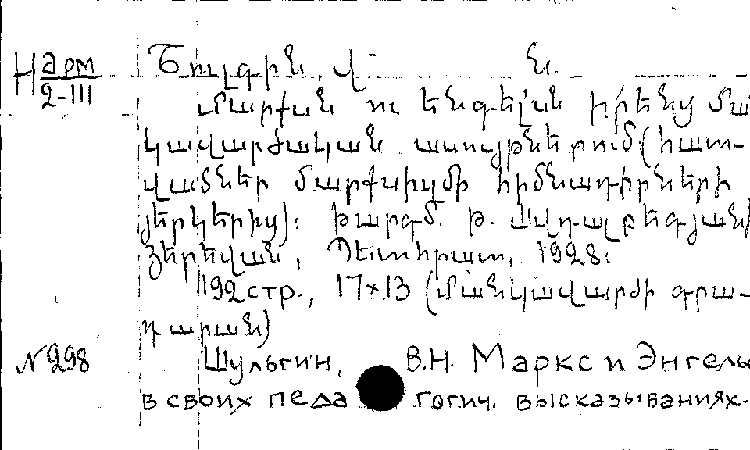 Нарм
2-III
Շուլգին, Վ. Ն.
Մարքսն ու Ենգելսն իրենց ման
կավարժական ասույթներում (հատ-
վածներ մարքսիզմի հիմնադիրների
յերկերից)։ Թարգմ. Թ. Ավդալբեգյան։
Յերեվան, Պետհրատ, 1928։
192 стр., 17×13 (Մանկավարժի գրա-
դարան)
№298 Шульгин, В.Н. Маркс и Энгельс
в своих педагогич. высказываниях.